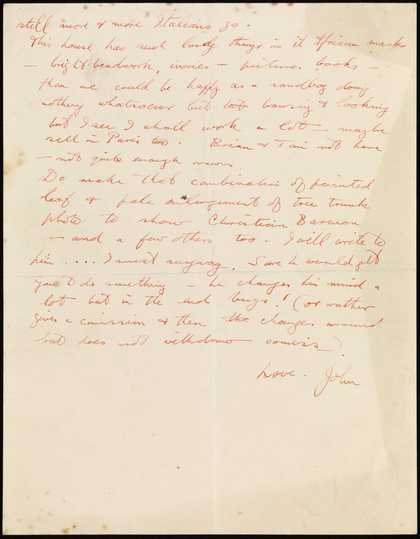 still more & more Italians go.
This house has such lovely things in it African masks
— bright beadwork, ivories — pictures books —
than we could be happy as a sandboy doing
nothing whatsoever but & looking
but I see I shall work a lot — maybe
sell in Paris too. Brian & I not have
— not quite enough room.
Do make that combination of painted
leaf & pale enlargement of tree trunk
photo to show Christian
— and a few others too. I will write to
him .... I must anyway. Sure he would get
you to do something — he changes his mind a
lot but in the end buys! (or rather
gives a comission & then changes around
but does not withdraw comission)
Love. John